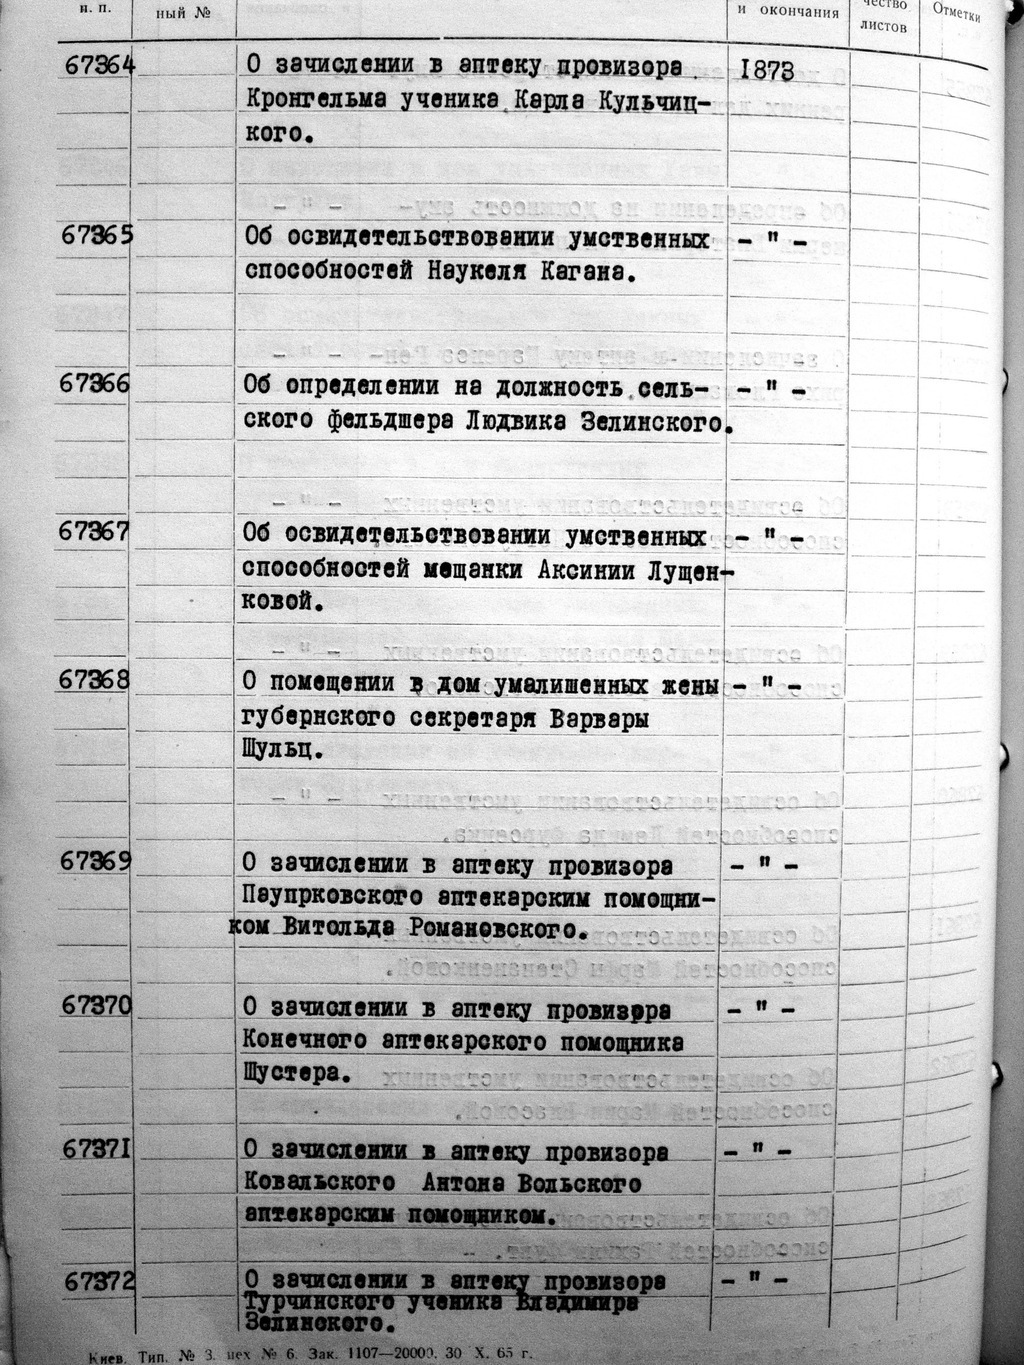 н. п.
ный №
и окончания
чество
листов
Отметки
67364 О зачислении в аптеку провизора 1873
Кронгельма ученика Карла Кульчиц-
кого.
67365 Об освидетельствовании умственных - " -
способностей Наукеля Кагана.
67366 Об определении на должность сель- - " -
ского фельдшера Людвика Зелинского.
67367 Об освидетельствовании умственных - " -
способностей мещанки Аксинии Лущен-
ковой.
67368 О помещении в дом умалишенных жены - " -
губернского секретаря Варвары
Шульц.
67369 О зачислении в аптеку провизора - " -
Паупрковского аптекарским помощни-
ком Витольда Романовского.
67370 О зачислении в аптеку провизора - " -
Конечного аптекарского помощника
Шустера.
67371 О зачислении в аптеку провизора - " -
Ковальского Антона Вольского
аптекарским помощником.
67372 О зачислении в аптеку провизора - " -
Турчинского ученика Владимира
Зелинского.
Киев. Тип. № 3. цех № 6. Зак. 1107—20000. 30 X. 65 г.